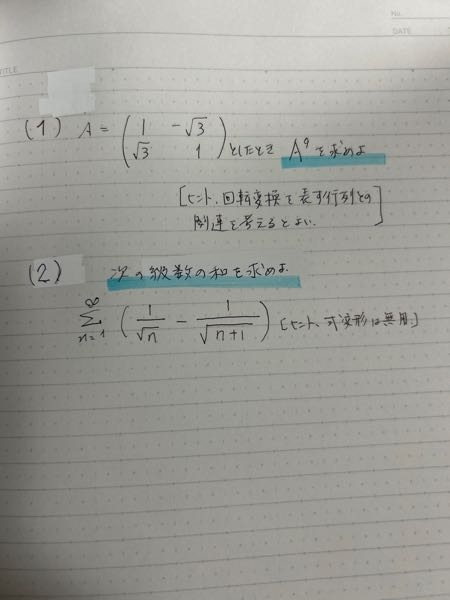 No.
DATE
TITLE
(1) A = ( 1 -√3 ) としたとき A⁹ を求めよ
√3 1
[ヒント、回転変換を表す行列との
関連を考えるとよい.]
(2) 次の級数の和を求めよ.
∞
Σ ( 1/√n - 1/√n+1 ) [ヒント、式変形は無用.]
n=1